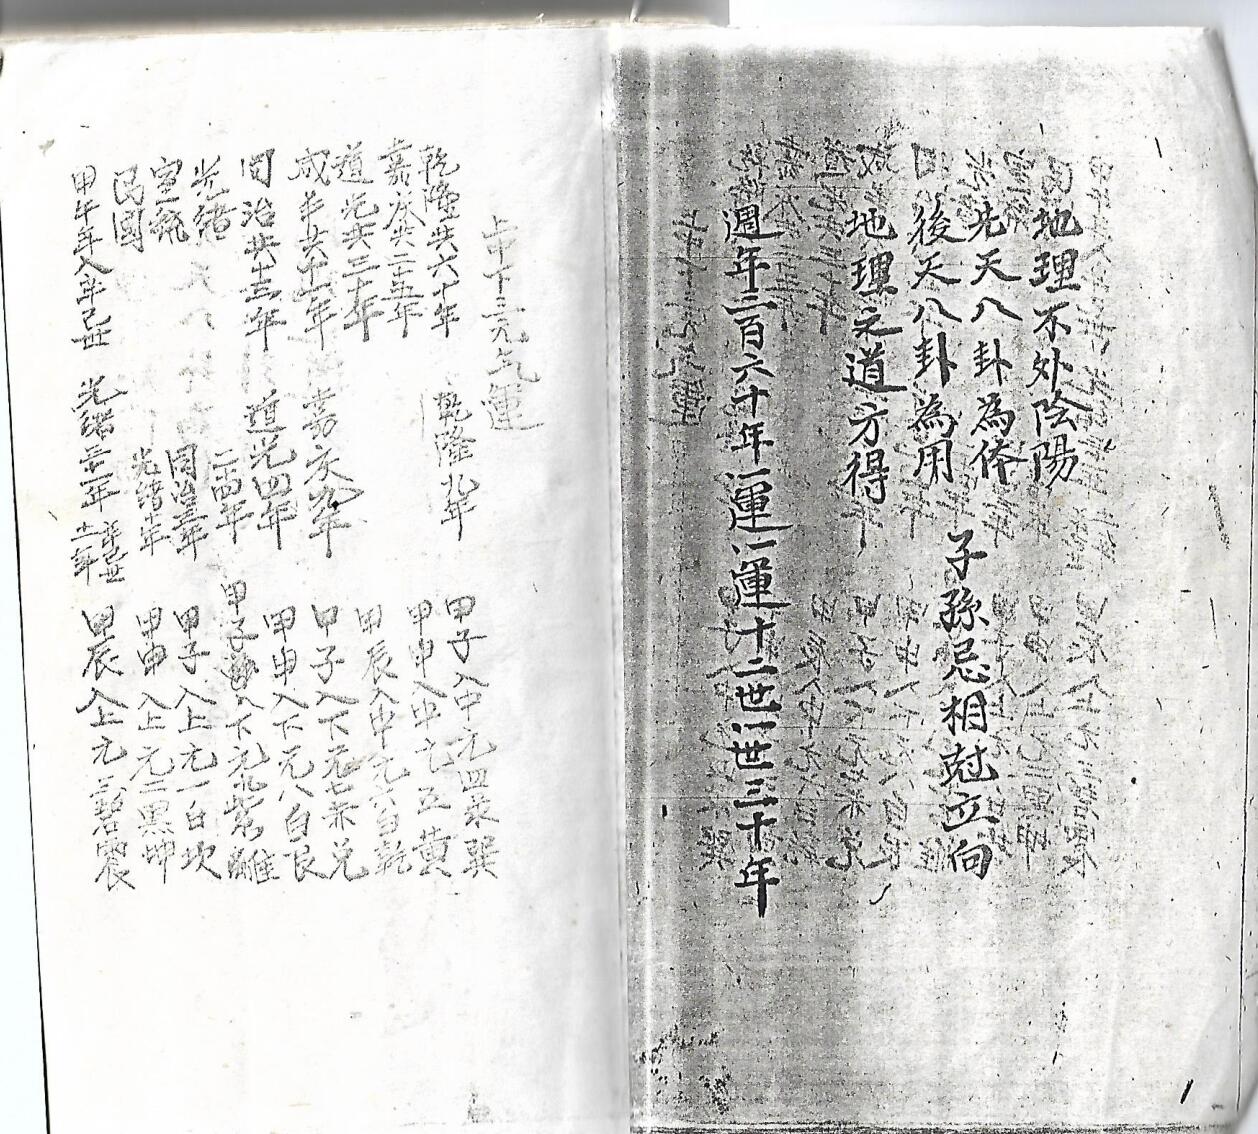 地理不外陰陽
先天八卦為体
後天八卦為用
子孫忌相尅立向
地理之道方得
週年三百六十年一運一運十二世一世三十年
上中下三元氣運
乾隆共六十年 乾隆九年 甲子入中元四菉巽
嘉慶共二十五年 甲申入中元五黄
道光共三十年 甲辰入中元六白乾
咸丰共十一年 嘉慶九年 甲子入下元七赤兌
同治共十三年 道光四年 甲申入下元八白艮
光緒 二四年 甲子 入下元九紫離
宣統 同治三年 甲子入上元一白坎
民國 光緒十年 甲申入上元二黑坤
甲午年入 光緒三十一年 甲辰入上元三碧震